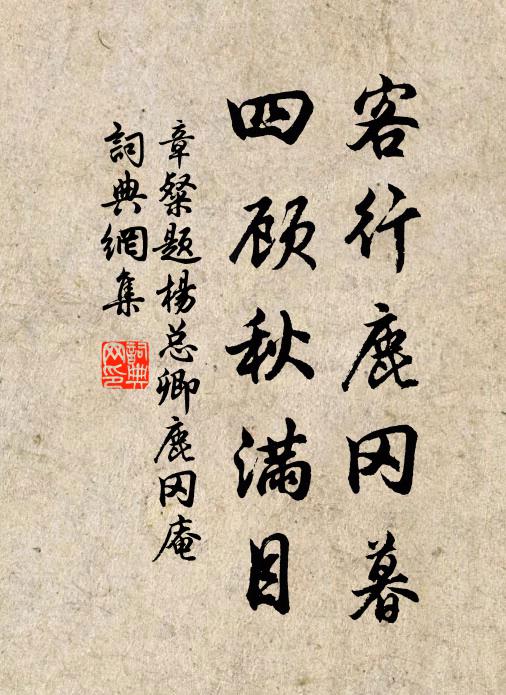 客行鹿冈暮
四顾秋满目
章粲题楊总卿鹿冈庵
詞典網集
詞典
网印